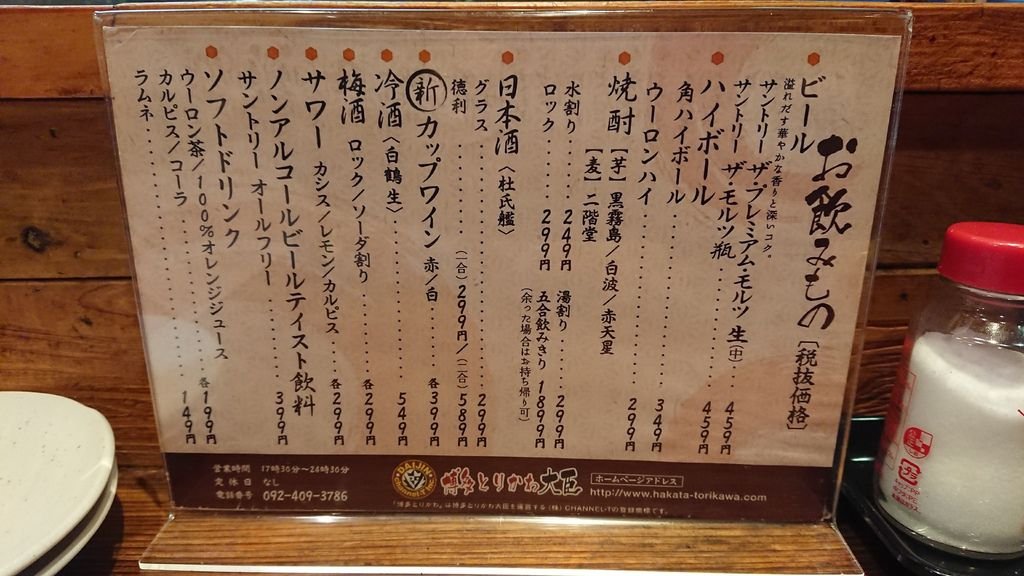 お飲みもの［税抜価格］
ビール
溢れだす華やかな香りと深いコク。
サントリー ザ・プレミアム・モルツ 生（中）‥459円
サントリー ザ・モルツ 瓶‥‥‥459円
ハイボール
角ハイボール‥‥‥349円
ウーロンハイ‥‥‥299円
焼酎［芋］黒霧島／白波／赤天星
［麦］二階堂
水割り‥‥‥249円 湯割り‥‥‥299円
ロック‥‥‥299円 五合飲みきり 1899円
（余った場合はお持ち帰り可）
日本酒〈杜氏鑑〉
グラス‥‥‥299円
徳利‥‥‥（一合）299円／（二合）589円
新 カップワイン 赤／白‥‥各399円
冷酒〈白鶴 生〉‥‥‥549円
梅酒 ロック／ソーダ割り‥‥各299円
サワー カシス／レモン／カルピス‥‥各299円
ノンアルコールビールテイスト飲料
サントリー オールフリー‥‥‥399円
ソフトドリンク
ウーロン茶／100％オレンジジュース 各199円
カルピス／コーラ‥‥‥149円
ラムネ‥‥‥
営業時間 17時30分〜24時30分
定休日 なし
電話番号 092-409-3786
DAIJIN
博多とりかわ大臣
ホームページアドレス
http://www.hakata-torikawa.com
「博多とりかわ」は博多とりかわ大臣を運営する（株）CHANNEL-Tの登録商標です。